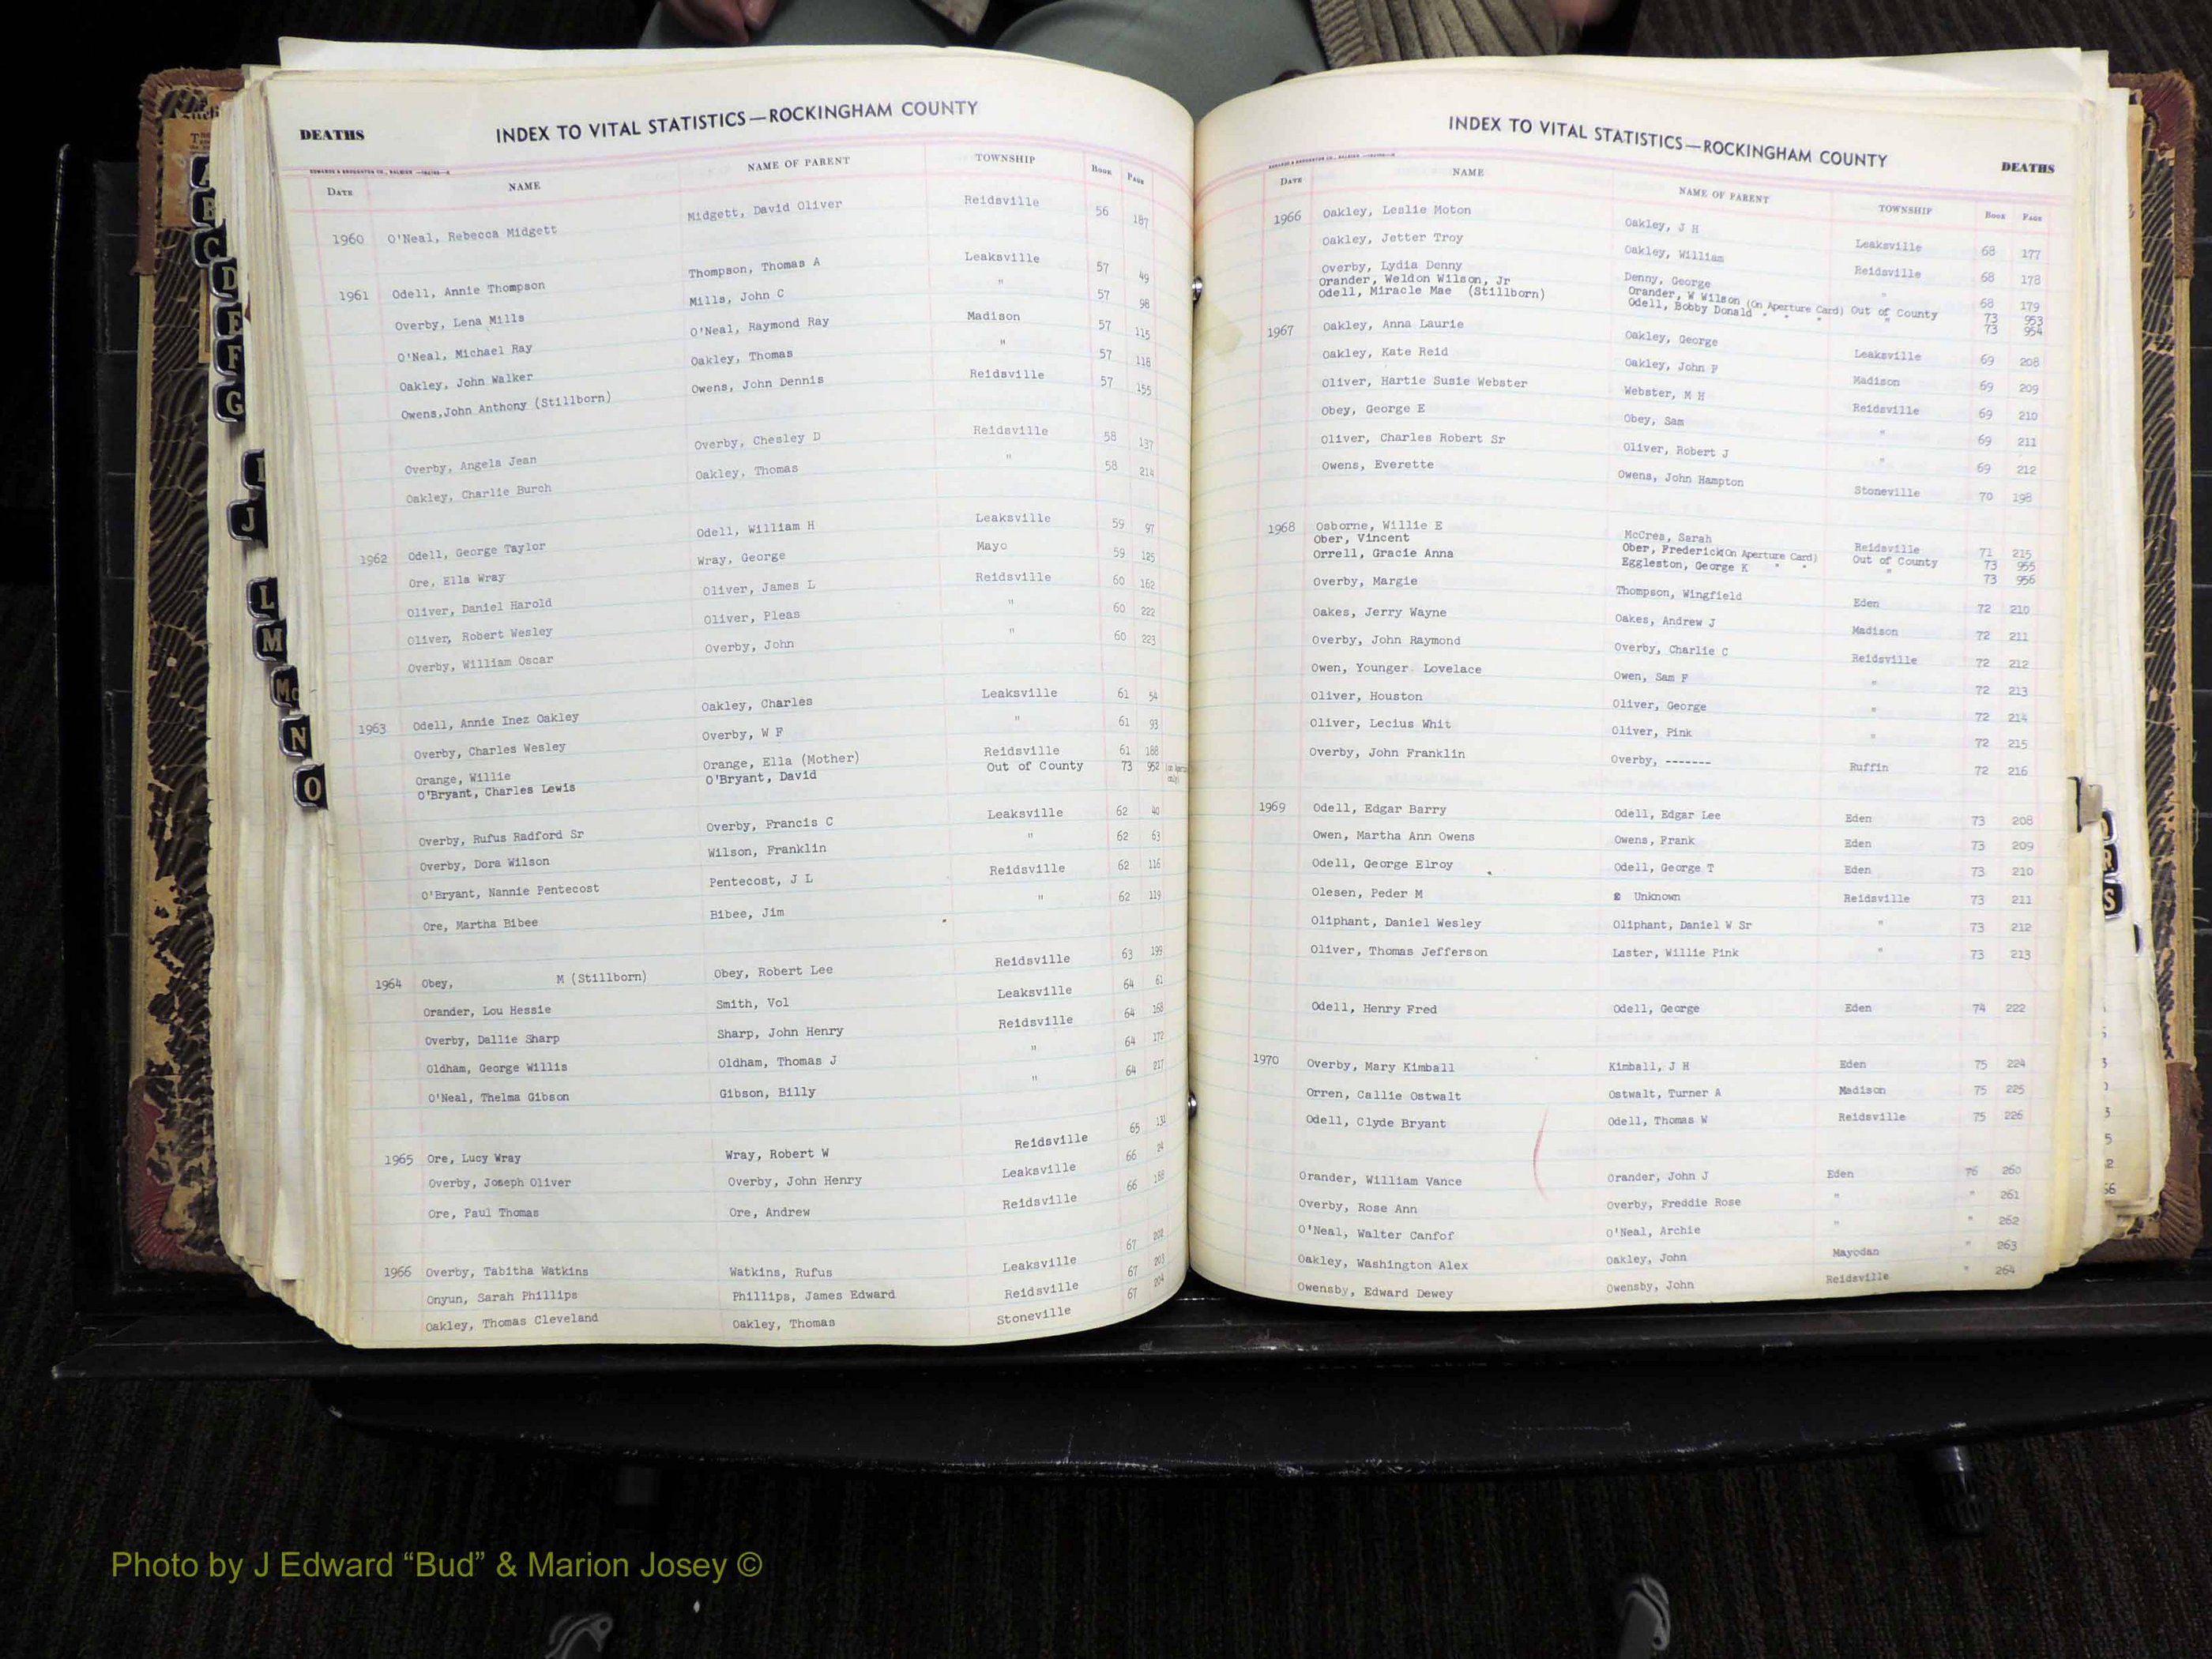 DEATHS
INDEX TO VITAL STATISTICS—ROCKINGHAM COUNTY
DATE NAME NAME OF PARENT TOWNSHIP BOOK PAGE
1960 O'Neal, Rebecca Midgett Midgett, David Oliver Reidsville 56 187
1961 Odell, Annie Thompson Thompson, Thomas A Leaksville 57 49
Overby, Lena Mills Mills, John C " 57 98
O'Neal, Michael Ray O'Neal, Raymond Ray Madison 57 115
Oakley, John Walker Oakley, Thomas " 57 118
Owens,John Anthony (Stillborn) Owens, John Dennis Reidsville 57 155
Overby, Angela Jean Overby, Chesley D Reidsville 58 137
Oakley, Charlie Burch Oakley, Thomas " 58 214
1962 Odell, George Taylor Odell, William H Leaksville 59 97
Ore, Ella Wray Wray, George Mayo 59 125
Oliver, Daniel Harold Oliver, James L Reidsville 60 162
Oliver, Robert Wesley Oliver, Pleas " 60 222
Overby, William Oscar Overby, John " 60 223
1963 Odell, Annie Inez Oakley Oakley, Charles Leaksville 61 54
Overby, Charles Wesley Overby, W F " 61 93
Orange, Willie Orange, Ella (Mother) Reidsville 61 188
O'Bryant, Charles Lewis O'Bryant, David Out of County 73 952
Overby, Rufus Radford Sr Overby, Francis C Leaksville 62 40
Overby, Dora Wilson Wilson, Franklin " 62 63
O'Bryant, Nannie Pentecost Pentecost, J L Reidsville 62 116
Ore, Martha Bibee Bibee, Jim " 62 119
1964 Obey, M (Stillborn) Obey, Robert Lee Reidsville 63 199
Orander, Lou Hessie Smith, Vol Leaksville 64 61
Overby, Dallie Sharp Sharp, John Henry Reidsville 64 168
Oldham, George Willis Oldham, Thomas J " 64 172
O'Neal, Thelma Gibson Gibson, Billy " 64 217
1965 Ore, Lucy Wray Wray, Robert W Reidsville 65 131
Overby, Joseph Oliver Overby, John Henry Leaksville 66 24
Ore, Paul Thomas Ore, Andrew Reidsville 66 188
1966 Overby, Tabitha Watkins Watkins, Rufus Leaksville 67 202
Onyun, Sarah Phillips Phillips, James Edward Reidsville 67 203
Oakley, Thomas Cleveland Oakley, Thomas Stoneville 67 204
INDEX TO VITAL STATISTICS—ROCKINGHAM COUNTY
DEATHS
DATE NAME NAME OF PARENT TOWNSHIP BOOK PAGE
1966 Oakley, Leslie Moton Oakley, J H Leaksville 68 177
Oakley, Jetter Troy Oakley, William Reidsville 68 178
Overby, Lydia Denny Denny, George " 68 179
Orander, Weldon Wilson, Jr Orander, W Wilson (On Aperture Card) Out of County 73 953
Odell, Miracle Mae (Stillborn) Odell, Bobby Donald " " " " 73 954
1967 Oakley, Anna Laurie Oakley, George Leaksville 69 208
Oakley, Kate Reid Oakley, John F Madison 69 209
Oliver, Hartie Susie Webster Webster, M H Reidsville 69 210
Obey, George E Obey, Sam " 69 211
Oliver, Charles Robert Sr Oliver, Robert J " 69 212
Owens, Everette Owens, John Hampton Stoneville 70 198
1968 Osborne, Willie E McCrea, Sarah Reidsville 71 215
Ober, Vincent Ober, Frederick(On Aperture Card) Out of County 73 955
Orrell, Gracie Anna Eggleston, George K " " " 73 956
Overby, Margie Thompson, Wingfield Eden 72 210
Oakes, Jerry Wayne Oakes, Andrew J Madison 72 211
Overby, John Raymond Overby, Charlie C Reidsville 72 212
Owen, Younger Lovelace Owen, Sam F " 72 213
Oliver, Houston Oliver, George " 72 214
Oliver, Lecius Whit Oliver, Pink " 72 215
Overby, John Franklin Overby, ------- Ruffin 72 216
1969 Odell, Edgar Barry Odell, Edgar Lee Eden 73 208
Owen, Martha Ann Owens Owens, Frank Eden 73 209
Odell, George Elroy Odell, George T Eden 73 210
Olesen, Peder M Unknown Reidsville 73 211
Oliphant, Daniel Wesley Oliphant, Daniel W Sr " 73 212
Oliver, Thomas Jefferson Laster, Willie Pink " 73 213
Odell, Henry Fred Odell, George Eden 74 222
1970 Overby, Mary Kimball Kimball, J H Eden 75 224
Orren, Callie Ostwalt Ostwalt, Turner A Madison 75 225
Odell, Clyde Bryant Odell, Thomas W Reidsville 75 226
Orander, William Vance Orander, John J Eden 76 260
Overby, Rose Ann Overby, Freddie Rose " " 261
O'Neal, Walter Canfof O'Neal, Archie " " 262
Oakley, Washington Alex Oakley, John Mayodan " 263
Owensby, Edward Dewey Owensby, John Reidsville " 264
B
C
D
E
F
G
I
J
L
M
Mc
N
O
R
S
Photo by J Edward “Bud” & Marion Josey ©